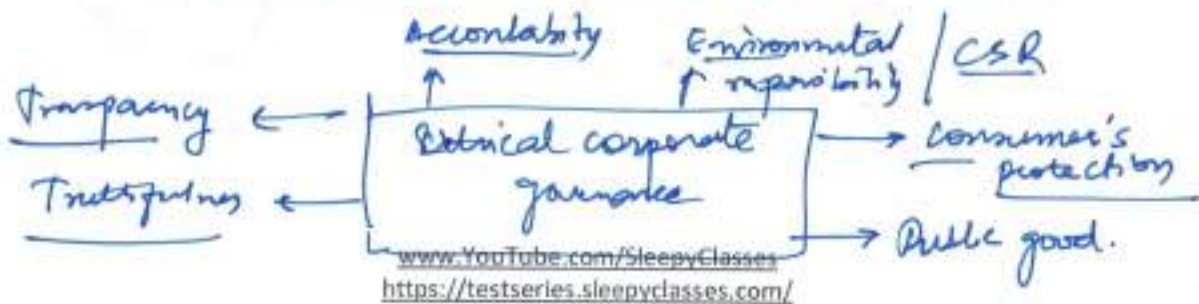 Accountability
Environmental responsibility / CSR
Transparency
Ethical corporate governance
Consumer's protection
Truthfulness
Public good.
www.YouTube.com/SleepyClasses
https://testseries.sleepyclasses.com/